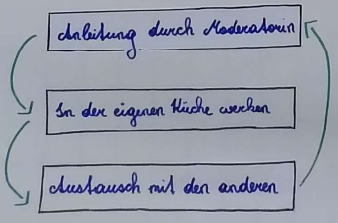 Anleitung durch Moderatorin
In der eigenen Küche werken
Austausch mit den anderen